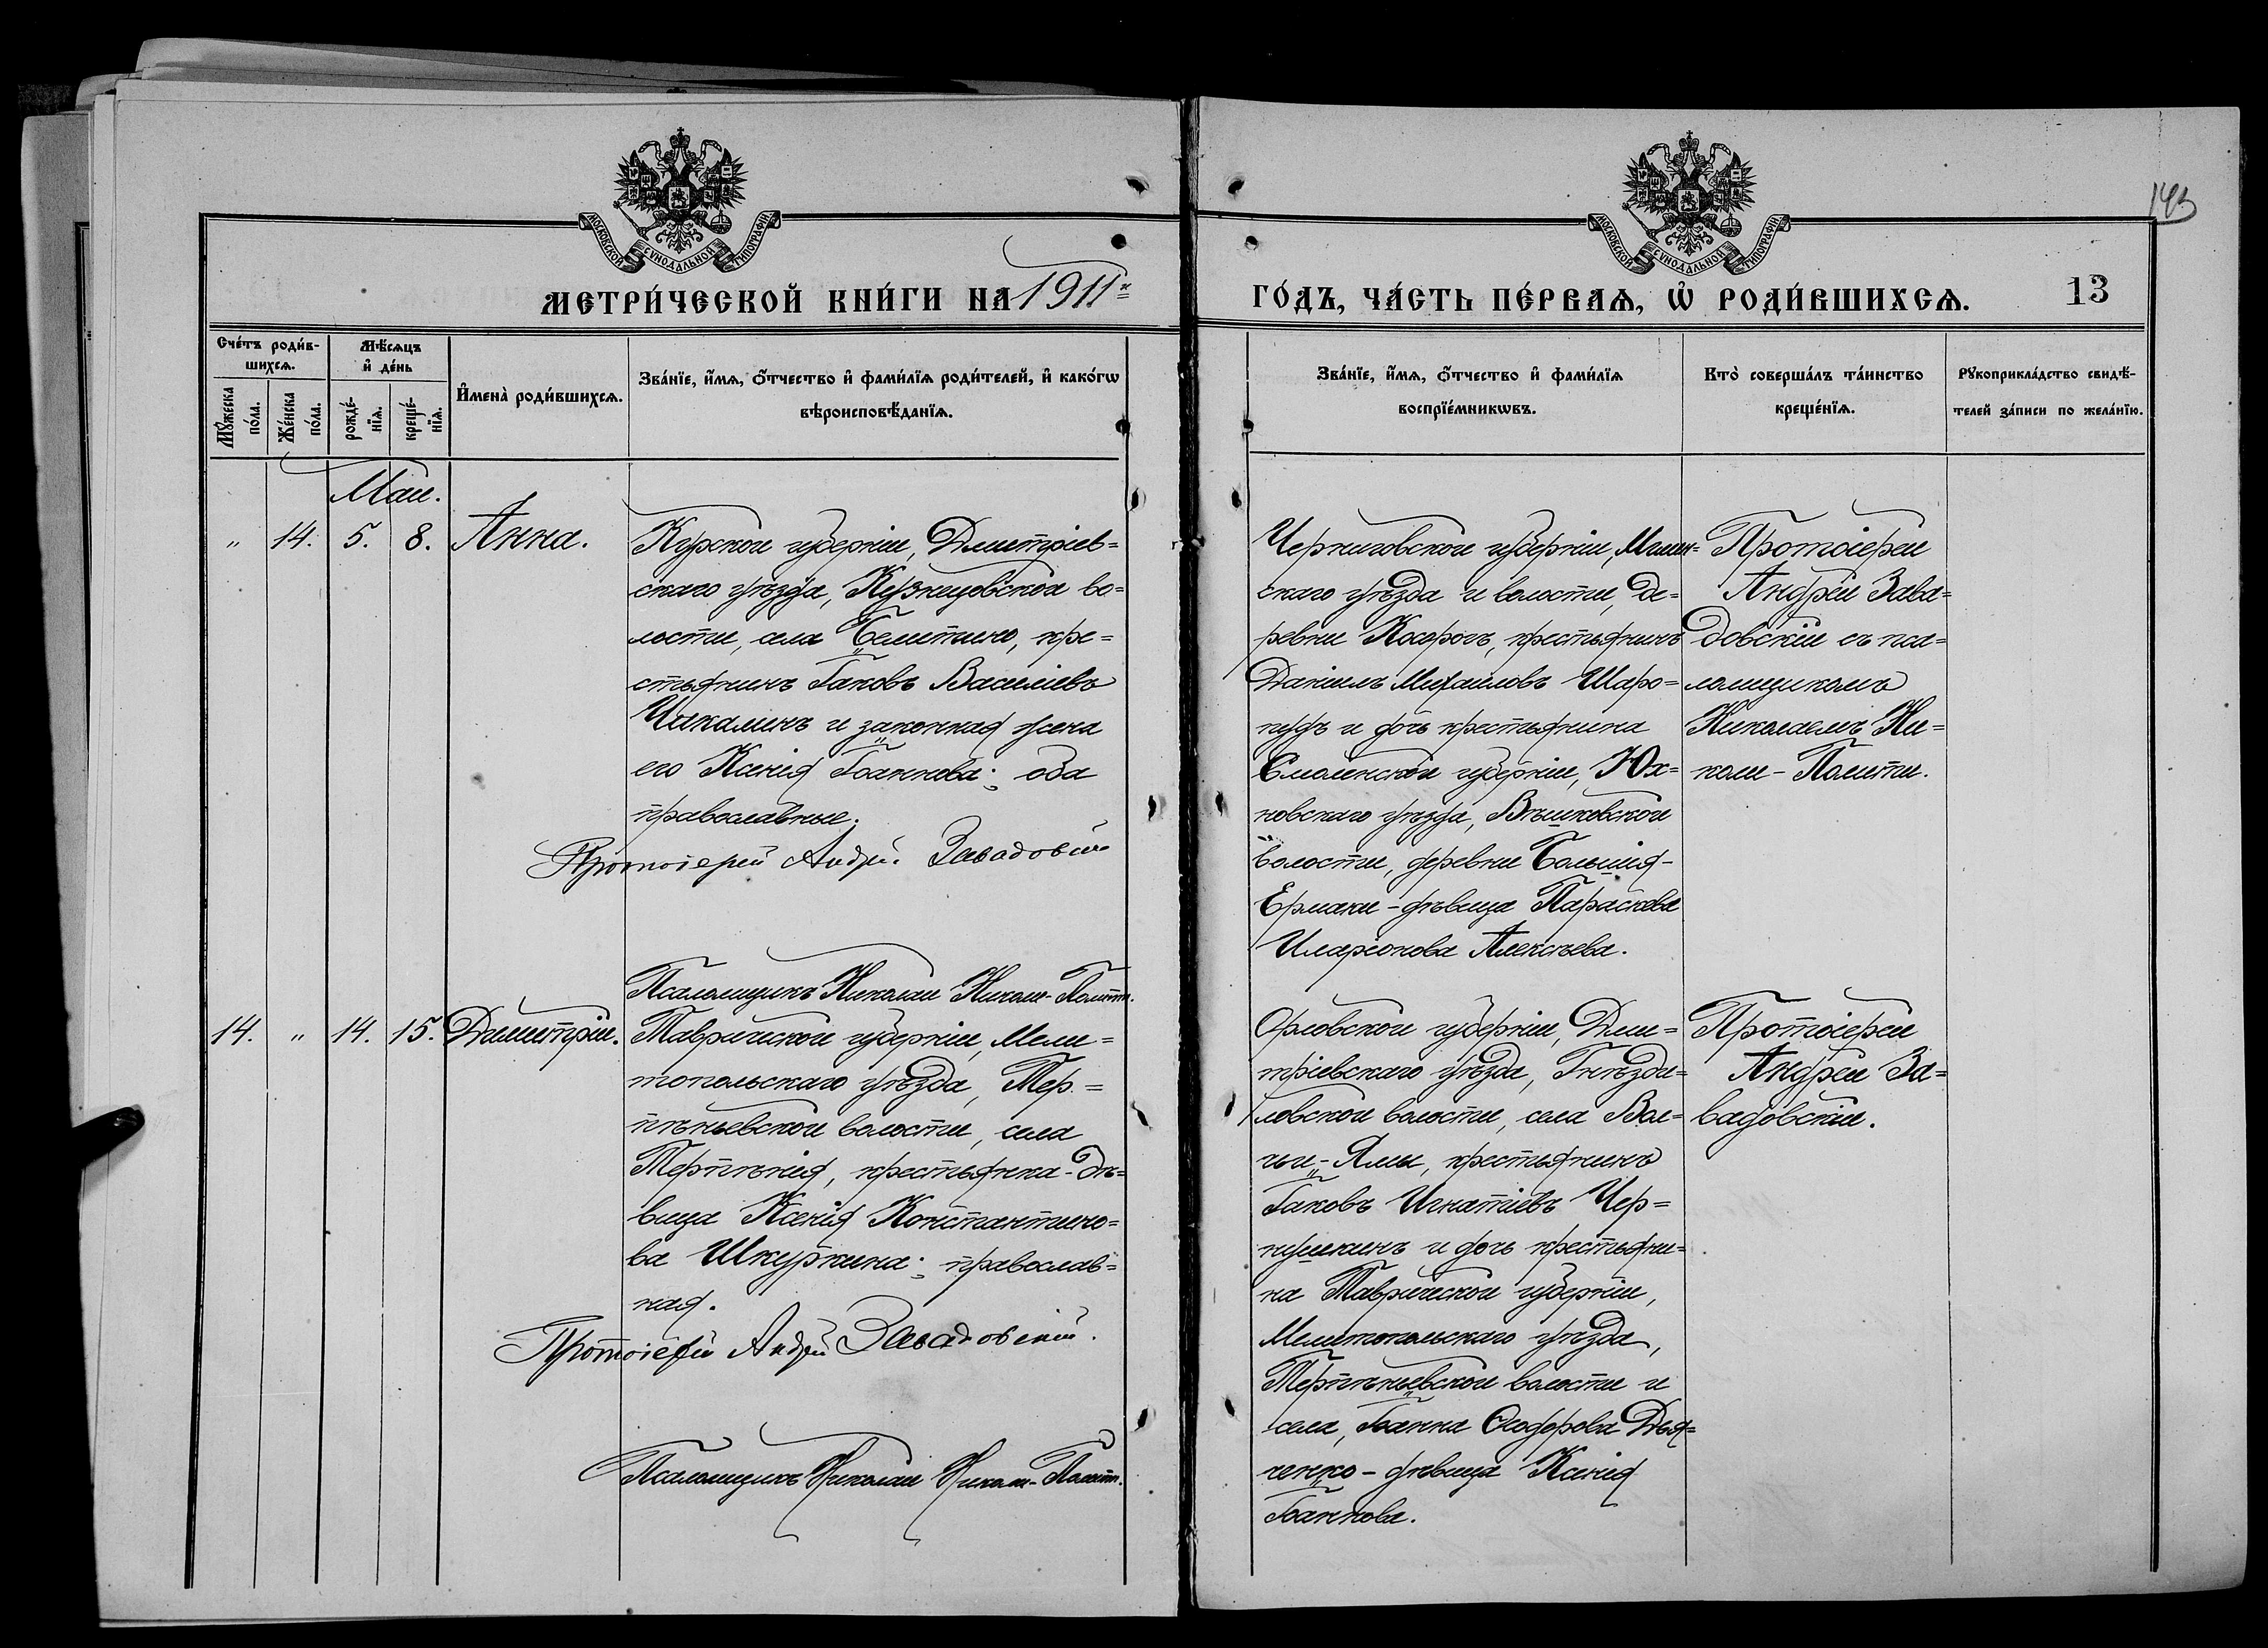 143
МОСКОВСКОЙ СѴНОДАЛЬНОЙ ТИПОГРАФІИ
МОСКОВСКОЙ СѴНОДАЛЬНОЙ ТИПОГРАФІИ
МЕТРИ́ЧЕСКОЙ КНИ́ГИ НА 1911й
ГО́ДЪ, ЧА́СТЬ ПЕ́РВАѦ, Ѡ҆ РОДИ́ВШИХСѦ. 13
Сче́тъ роди́в-
шихсѧ.
Мꙋ́жеска
по́ла.
Же́нска
по́ла.
Мѣ́сѧцъ
и҆ де́нь
рожде́-
нїѧ.
креще́-
нїѧ.
И҆мена̀ роди́вшихсѧ.
Зва́нїе, и҆́мѧ, ѻ҆́тчество и҆ фами́лїѧ роди́телей, и҆ како́гѡ
вѣроисповѣ́данїѧ.
Зва́нїе, и҆́мѧ, ѻ҆́тчество и҆ фами́лїѧ
воспрїе́мникѡвъ.
Кто̀ соверша́лъ та́инство
креще́нїѧ.
Рꙋкоприкла́дство свидѣ́-
телей за́писи по жела́нїю.
Май.
" 14. 5. 8. Анна.
Курской губерніи, Дмитріев=
скаго уѣзда, Кузнецовской во=
лости, села Белитино, кре=
стьянинъ Іаковъ Василіевъ
Чикалинъ и законная жена
его Ксенія Іоаннова; оба
православные.
Протоіерей Андрей Завадовскій
Псаломщикъ Николай Николи-Политти.
Черниговской губерніи, Мглин=
скаго уѣзда и волости, де=
ревни Косорогъ, крестьянинъ
Даніилъ Михаиловъ Шаро=
пудъ и дочь крестьянина
Смоленской губерніи, Юх=
новскаго уѣзда, Вѣшковской
волости, деревни Большія-
Ермаки - дѣвица Параскева
Иларіонова Алексѣева.
Протоіерей
Андрей Зава=
довскій съ пса=
ломщикомъ
Николаемъ Ни=
коли-Политти.
14. " 14. 15. Димитрій.
Таврической губерніи, Мели=
топольскаго уѣзда, Тер=
пѣньевской волости, села
Терпѣнія, крестьянка-дѣ=
вица Ксенія Константино=
ва Шкуркина; православ=
ная.
Протоіерей Андрей Завадовскій.
Псаломщикъ Николай Николи-Политти.
Орловской губерніи, Дми=
тріевскаго уѣзда, Гнѣзди=
ловской волости, села Вол=
чьи-Ямы, крестьянинъ
Іаковъ Игнатіевъ Чер=
нушкинъ и дочь крестьяни=
на Таврической губерніи,
Мелитопольскаго уѣзда,
Терпѣньевской волости и
села, Іоанна Ѳеодорова Дья=
ченко - дѣвица Ксенія
Іоаннова.
Протоіерей
Андрей За=
вадовскій.